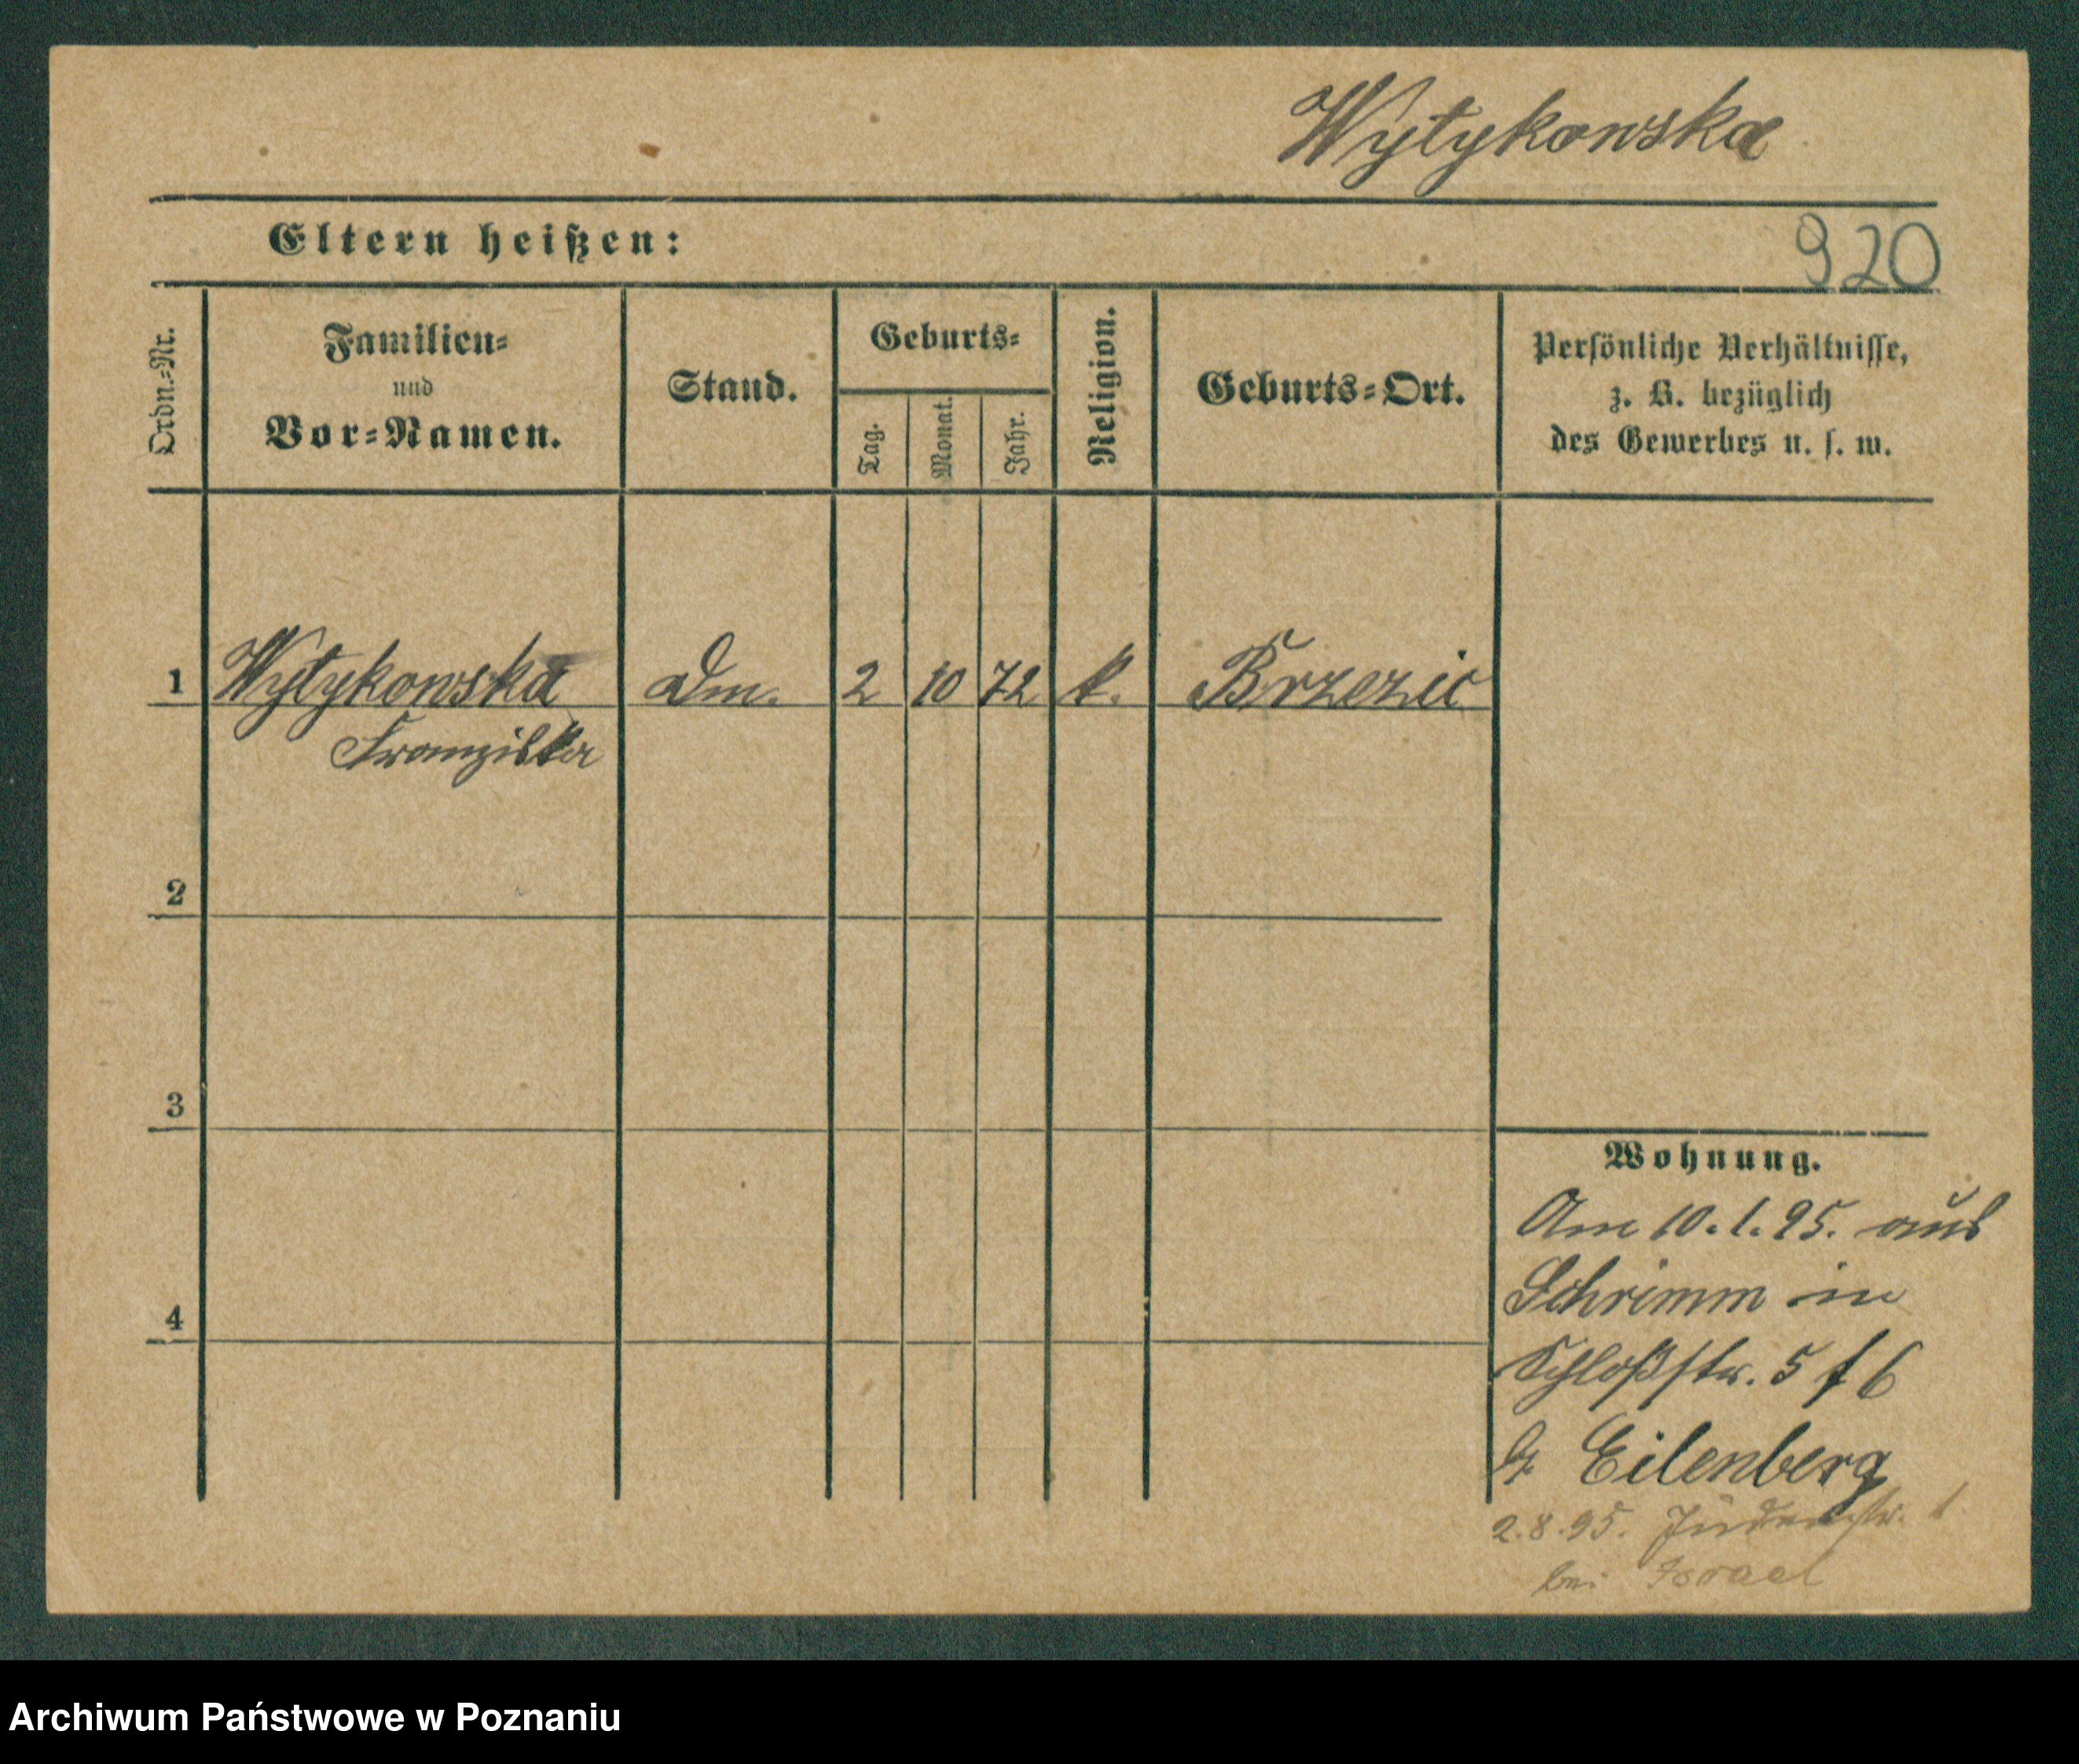 Wytykowska
Eltern heißen:
920
Ordn.-Nr.
Familien-
und
Vor-Namen.
Stand.
Geburts-
Tag.
Monat.
Jahr.
Religion.
Geburts-Ort.
Persönliche Verhältnisse,
z. B. bezüglich
des Gewerbes u. s. w.
1 Wytykowska Dm. 2 10 72 k. Brzezic
Franziska
2
3
4
Wohnung.
Am 10.1.95. aus
Schrimm in
Schloßstr. 5 f 6
Eilenberg
2.8.95. Judenstr. 1.
bei Israel
Archiwum Państwowe w Poznaniu